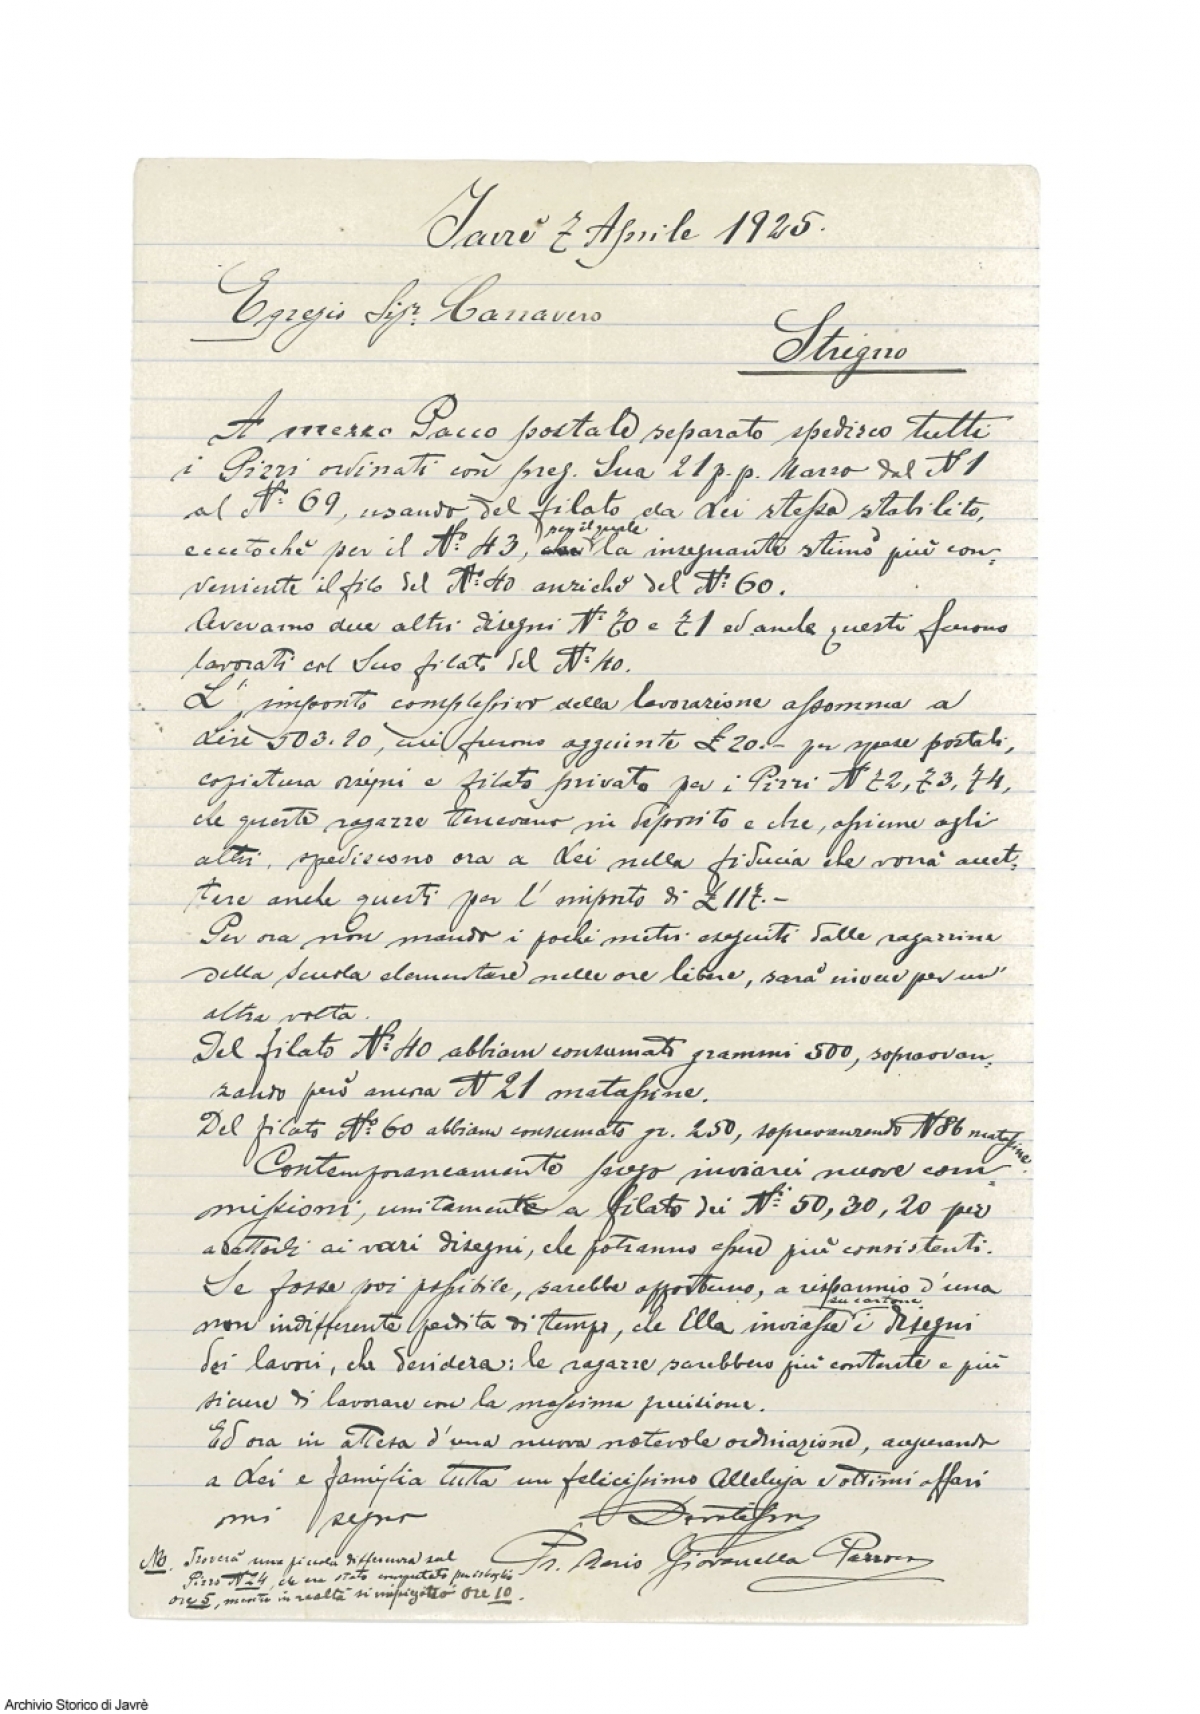 Javrè 7 Aprile 1925.
Egregio Sigr. Cannavero
Strigno
A mezzo Pacco postale separato spedisco tutti
i Pizzi ordinati con preg. Sua 21 p. p. Marzo dal N 1
al No. 69, usando del filato da Lei stesso stabilito,
eccetochè per il No. 43, per il quale la insegnante stimò più con-
veniente il filo del No. 40 anzichè del No. 60.
Avevamo due altri disegni No. 70 e 71 ed anche questi furono
lavorati col Suo filato del No. 40.
L'importo complessivo della lavorazione assomma a
Lire 503.20, cui furono aggiunte £ 20.- per spese postali,
copiatura disegni e filato privato per i Pizzi N 72, 73, 74,
che queste ragazze tenevano in deposito e che, assieme agli
altri, spediscono ora a Lei nella fiducia che vorrà accet-
tare anche questi per l'importo di £ 117.-
Per ora non mando i pochi metri eseguiti dalle ragazzine
della scuola elementare nelle ore libere, sarà invece per un'
altra volta.
Del filato No. 40 abbiam consumato grammi 500, sopravan-
zando però ancora N 21 matassine.
Del filato No. 60 abbiam consumato gr. 250, sopravanzando N 86 matassine.
Contemporaneamente prego inviarci nuove com-
missioni, unitamente a filato dei Ni. 50, 30, 20 per
adattarli ai vari disegni, che potranno essere più consistenti.
Se fosse poi possibile, sarebbe opportuno, a risparmio d'una
non indifferente perdita di tempo, che Ella inviasse su cartone i disegni
dei lavori, che desidera: le ragazze sarebbero più contente e più
sicure di lavorare con la massima precisione.
Ed ora in attesa d'una nuova notevole ordinazione, augurando
a Lei e famiglia tutta un felicissimo Alleluja e ottimi affari
mi segno
Devotissimo
Pr. Dario Giovanella Parroco
NB. Troverà una piccola differenza sul
Pizzo N 24, che era stato computato per isbaglio
ore 5, mentre in realtà si impiegò ore 10.
Archivio Storico di Javrè